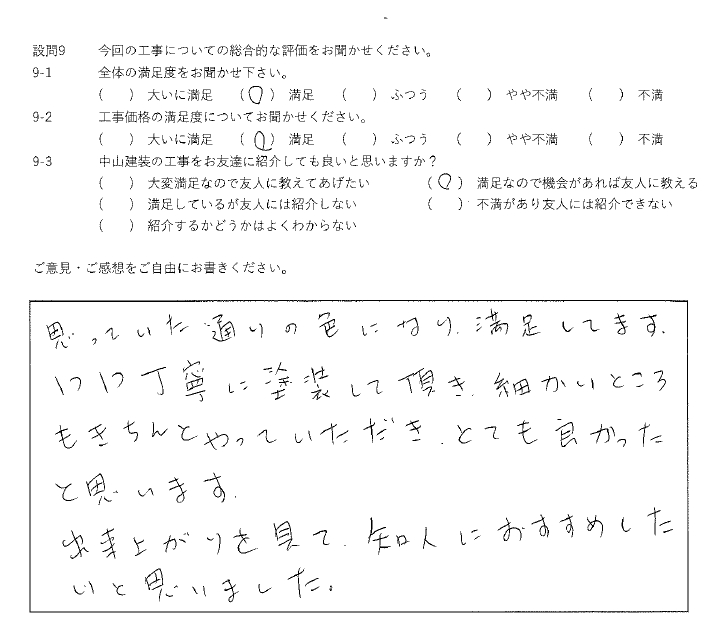 設問9 今回の工事についての総合的な評価をお聞かせください。
9-1 全体の満足度をお聞かせ下さい。
( ) 大いに満足 (○) 満足 ( ) ふつう ( ) やや不満 ( ) 不満
9-2 工事価格の満足度についてお聞かせください。
( ) 大いに満足 (○) 満足 ( ) ふつう ( ) やや不満 ( ) 不満
9-3 中山建装の工事をお友達に紹介しても良いと思いますか？
( ) 大変満足なので友人に教えてあげたい (○) 満足なので機会があれば友人に教える
( ) 満足しているが友人には紹介しない ( ) 不満があり友人には紹介できない
( ) 紹介するかどうかはよくわからない
ご意見・ご感想をご自由にお書きください。
思っていた通りの色になり、満足してます。
丁寧に塗装して頂き、細かいところ
もきちんとやっていただき、とても良かった
と思います。
出来上がりを見て、知人におすすめした
いと思いました。